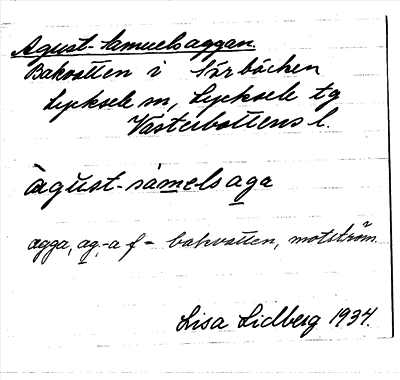 Agust-Samuelsaggan.
Bakvatten i Storbäcken
Lycksele sn, Lycksele tg
Västerbottens l.
àgust-sámelsaga
agga, ag.-a f = bakvatten, motström
Lisa Lidberg 1934.